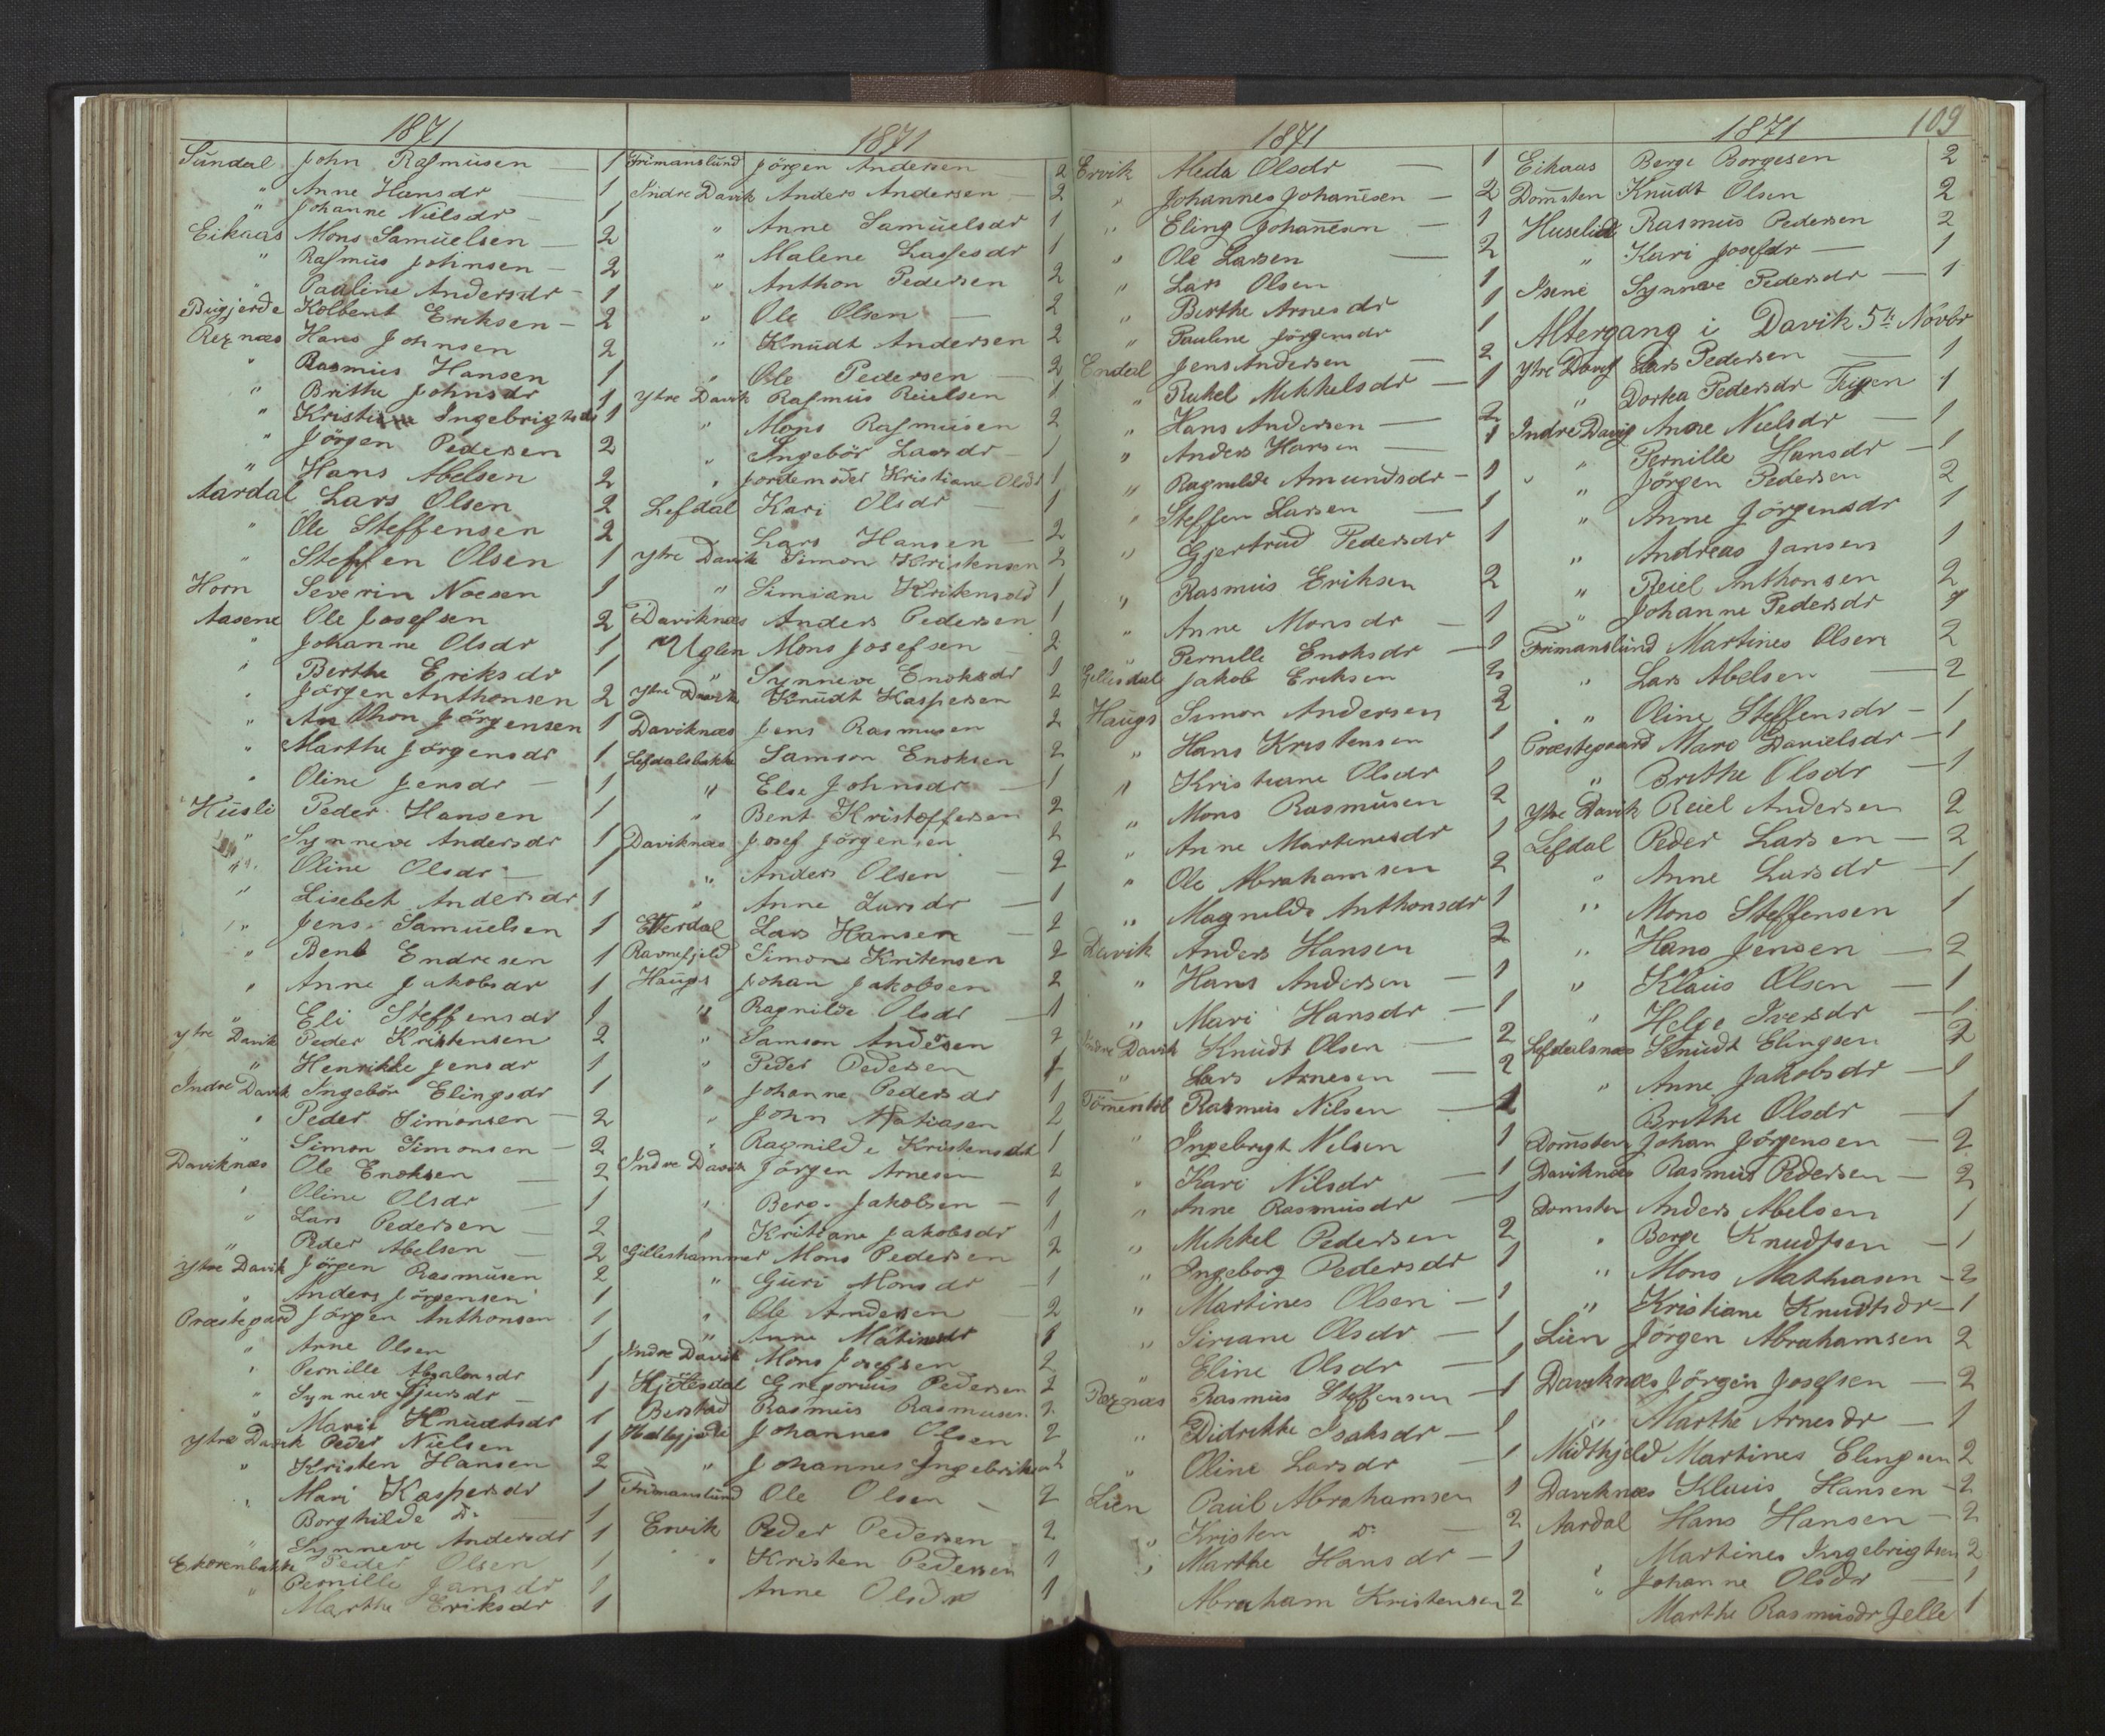 1871
Sundal John Rasmusen 1
" Anne Hansdr 1
" Johanne Nielsdr 1
Eikaas Mons Samuelsen 2
" Rasmus Johnsen 2
" Pauline Andersdr 1
Bugjerde Kolbent Eriksen 2
Reznæs Hans Johnsen 2
" Rasmus Hansen 1
" Brithe Johnsdr 1
" Kristiane Ingebrigtsdr 1
" Jörgen Pedersen 2
" Hans Abelsen 2
Aardal Lars Olsen 2
" Ole Steffensen 2
" Steffen Olsen 1
Horn Severin Noesen 1
Aasene Ole Josefsen 2
" Johanne Olsdr 1
" Berthe Eriksdr 1
" Jörgen Anthonsen 2
" Anthon Jörgensen 1
" Marthe Jörgensdr 1
" Oline Jensdr 1
Husli Peder Hansen 1
" Synneve Andersdr 1
" Oline Olsdr 1
" Lisebet Andersdr 1
" Jens Samuelsen 1
" Bent Endresen 1
" Anne Jakobsdr 1
" Eli Steffensdr 1
Ytre Davik Peder Kristensen 2
" Henrikke Jensdr 1
Indre Davik Ingebor Elingsdr 1
" Peder Simonsen 2
" Simon Simonsen 2
Daviknæs Ole Enoksen 2
" Oline Olsdr 1
" Lars Pedersen 2
" Peder Abelsen 2
Ytre Davik Jörgen Rasmusen 2
" Anders Jörgensen 1
Præstegard Jörgen Anthonsen 1
" Arne Olsen 1
" Pernille Absalonsdr 1
" Synneve Sjursdr 1
" Marit Knudtsdr 1
Ytre Davik Peder Nielsen 1
" Kristen Hansen 2
" Mari Kaspersdr 1
" Borghilde Do 1
" Synneve Andersdr 1
Ekorenbakke Peder Olsen 1
" Pernille Jansdr 1
Marthe Eriksdr 1
1871
Frimanslund Jörgen Andersen 2
Indre Davik Anders Andersen 2
" Anne Samuelsdr 1
" Malene Lassesdr 1
" Anthon Pedersen 2
" Ole Olsen 2
" Knudt Andersen 2
" Ole Pedersen 2
Ytre Davik Rasmus Reielsen 1
" Mons Rasmusen 2
" Ingebör Larsdr 1
" Jordemoder Kristiane Olsdr 1
Lefdal Kari Olsdr 1
Lars Hansen 2
Ytre Davik Simon Kristensen 2
" Simiane 1
Daviknæs Anders Pedersen 1
Uglen Mons Josefsen 2
" Synneve Enoksdr 1
Ytre Davik Knudt Kaspersen 2
Daviknæs Jens Rasmusen 2
Lefdalsbakke Samson Enoksen 2
" Else Johnsdr 1
" Bent Kristoffersen 2
Daviknæs Josef Jörgensen 2
" Anders Olsen 2
" Anne Larsdr 1
Etterdal Lars Hansen 2
Ravnefjeld Simon Kritensen 2
Haugs Johan Jakobsen 2
" Ragnilde Olsdr 1
" Samson Andersen 2
" Peder Pedersen 1
" Johanne Pedersdr 1
" John Matiasen 2
" Ragnilde Kristensdr 1
Indre Davik Jörgen Arnesen 2
" Berge Jakobsen 1
" Kritiane Jakobsdr 1
Gilleshammer Mons Pedersen 2
" Guri Monsdr 1
" Ole Andersen 2
" Anne 1
Indre Davik Mons Josefsen 2
Hjelesdal Gregorius Pedersen 2
Berstad Rasmus Rasmusen 2
Johannes Olsen 2
" Johannes Ingebriksen 2
Frimanslund Ole Olsen 2
Ervik Peder Pedersen 2
" Kristen Pedersen 1
Anne Olsdr 1
1871
Ervik Meda Olsdr 1
" Johannes Johanesen 2
" Eling Johanesen 1
" Ole Larsen 2
" Lars Olsen 1
" Berthe Arnesdr 1
" Pauline Jörgensdr 1
Endal Jens Andersen 2
" Rakel Mikkelsdr 1
" Hans Andersen 2
" Anders Hansen 1
" Ragnilde Amundsdr 1
" Steffen Larsen 1
" Gjertrud Pedersdr 1
" Rasmus Eriksen 2
" Anne Monsdr 1
Pernille Enoksdr 1
Gillesdal Jakob Eriksen 2
Haugs Simon Andersen 2
" Hans Kristensen 1
" Kristiane Olsdr 1
" Mons Rasmusen 2
" Anne Martinesdr 1
" Ole Abrahamsen 2
" Magnilde Anthonsdr 1
Davik Anders Hansen 2
" Hans Andersen 1
" Mari Hansdr 1
Indre Davik Knudt Olsen 2
" Lars Arnesen 2
Rasmus Nilsen 2
" Ingebrigt Nilsen 1
" Kari Nilsdr 1
" Anne Rasmusdr 1
" Mikkel Pedersen 2
" Ingeborg Pedersdr 1
" Martines Olsen 1
" Siriane Olsdr 1
" Eline Olsdr 1
Reznæs Rasmus Steffensen 1
" Didrikke Isaksdr 1
" Oline Larsdr 1
Lien Paul Abrahamsen 1
" Kristen Do 2
" Marthe Hansdr 1
Abraham Kristensen 2
1871 109
Eikaas Berge Borgesen 2
Domsten Knudt Olsen 2
Huselid Rasmus Pedersen 2
" Kari Josefdr 1
Isene Synneve Pedersdr 1
Altergang i Davik 5te Novbr
Ytre Davig Lars Pedersen 1
" Dortea Pedersdr 1
Indre Davig Anne Nielsdr 1
" Pernille Hansdr 1
" Jörgen Pedersen 2
" Anne Jörgensdr 1
" Andreas Jansen 1
" Reiel Anthonsen 2
" Johanne Pedersdr 1
Frimanslund Martines Olsen 2
" Lars Abelsen 2
" Oline Steffensdr 1
Præstegaard Mari Danielsdr 1
" Brithe Olsdr 1
Ytre Davik Reiel Andersen 2
Lefdal Peder Larsen 2
" Anne Larsdr 1
" Mons Steffensen 1
" Hans Jensen 2
" Klaus Olsen 1
" Helge Iversdr 1
Lefdalsnæs Knudt Elingsen 2
" Anne Jakobsdr 1
Brithe Olsdr 1
Domsten Johan Jörgensen 2
Daviknæs Rasmus Pedersen 2
Domsten Anders Abelsen 1
" Berge Knudtsen 1
" Mons Mathiasen 2
" Kristiane Knudtsdr 1
Lien Jörgen Abrahamsen 2
Daviknæs Jörgen Josefsen 2
" Marthe Arnesdr 1
Midthjeld Martines Elingsen 2
Daviknæs Klaus Hansen 2
Aardal Hans Hansen 2
" Martines Ingebrigtsen 2
" Johanne Olsdr 1
Marthe Rasmusdr Jelle 1